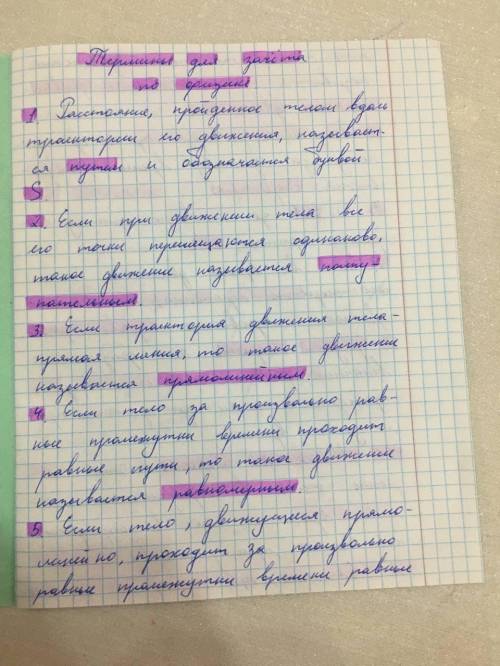 Термины для зачёта
по физике
1. Расстояние, пройденное телом вдоль
траектории его движения, называет-
ся путём и обозначается буквой
S.
2. Если при движении тела все
его точки перемещаются одинаково,
такое движение называется посту-
пательным.
3. Если траектория движения тела-
прямая линия, то такое движение
называется прямолинейным.
4. Если тело за произвольно рав-
ные промежутки времени проходит
равные пути, то такое движение
называется равномерным.
5. Если тело, движущееся прямо-
линейно, проходит за произвольно
равные промежутки времени равные